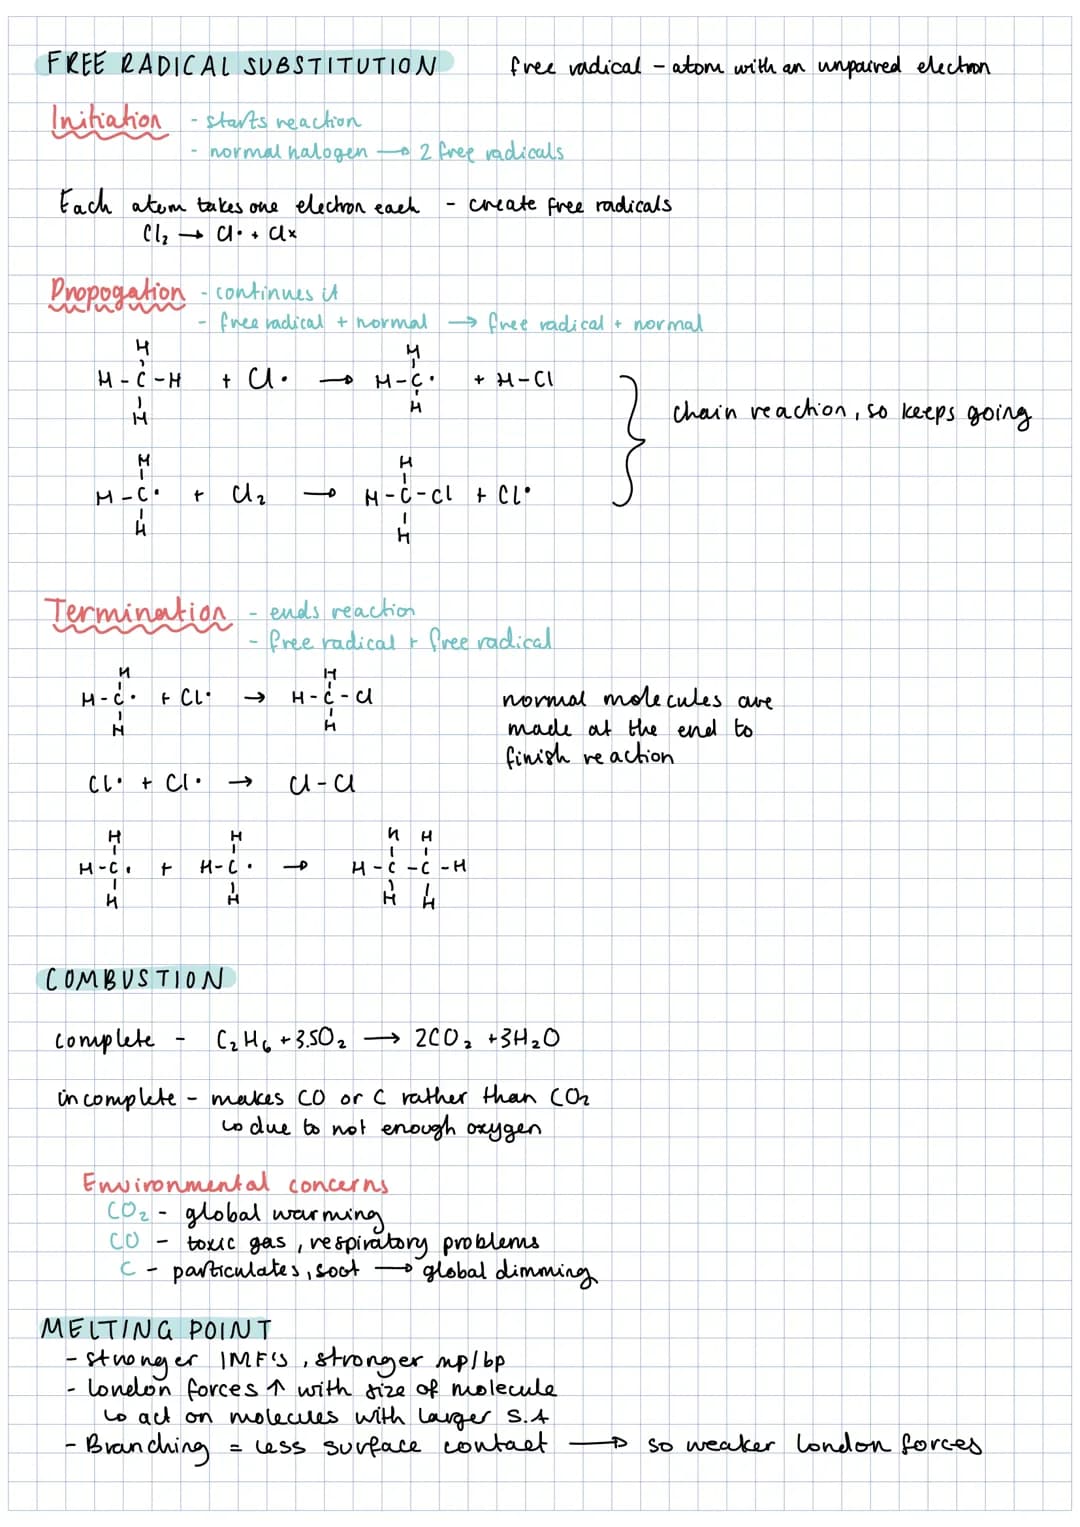 FREE RADICAL SUBSTITUTION free radical - atom with an unpaired electron
Initiation - starts reaction
- normal halogen → 2 free radicals
Each atom takes one electron each - create free radicals
Cl₂ → Cl• + Cl×
Propogation - continues it
- free radical + normal → free radical + normal
H H
H-C-H + Cl• → H-C• + H-Cl
H H
chain reaction, so keeps going
H H
H-C• + Cl₂ → H-C-Cl + Cl•
H H
Termination - ends reaction
- free radical + free radical
H H
H-C• + Cl• → H-C-Cl
H H
normal molecules are
made at the end to
finish reaction
Cl• + Cl• → Cl-Cl
H H H H
H-C• + H-C• → H-C-C-H
H H H H
COMBUSTION
complete - C₂H₆ + 3.5O₂ → 2CO₂ + 3H₂O
incomplete - makes CO or C rather than CO₂
↳ due to not enough oxygen
Environmental concerns
CO₂ - global warming
CO - toxic gas, respiratory problems
C - particulates, soot → global dimming
MELTING POINT
- stronger IMF's, stronger mp/bp
- london forces ↑ with size of molecule
↳ act on molecules with larger S.A
- Branching = less surface contact → so weaker london forces